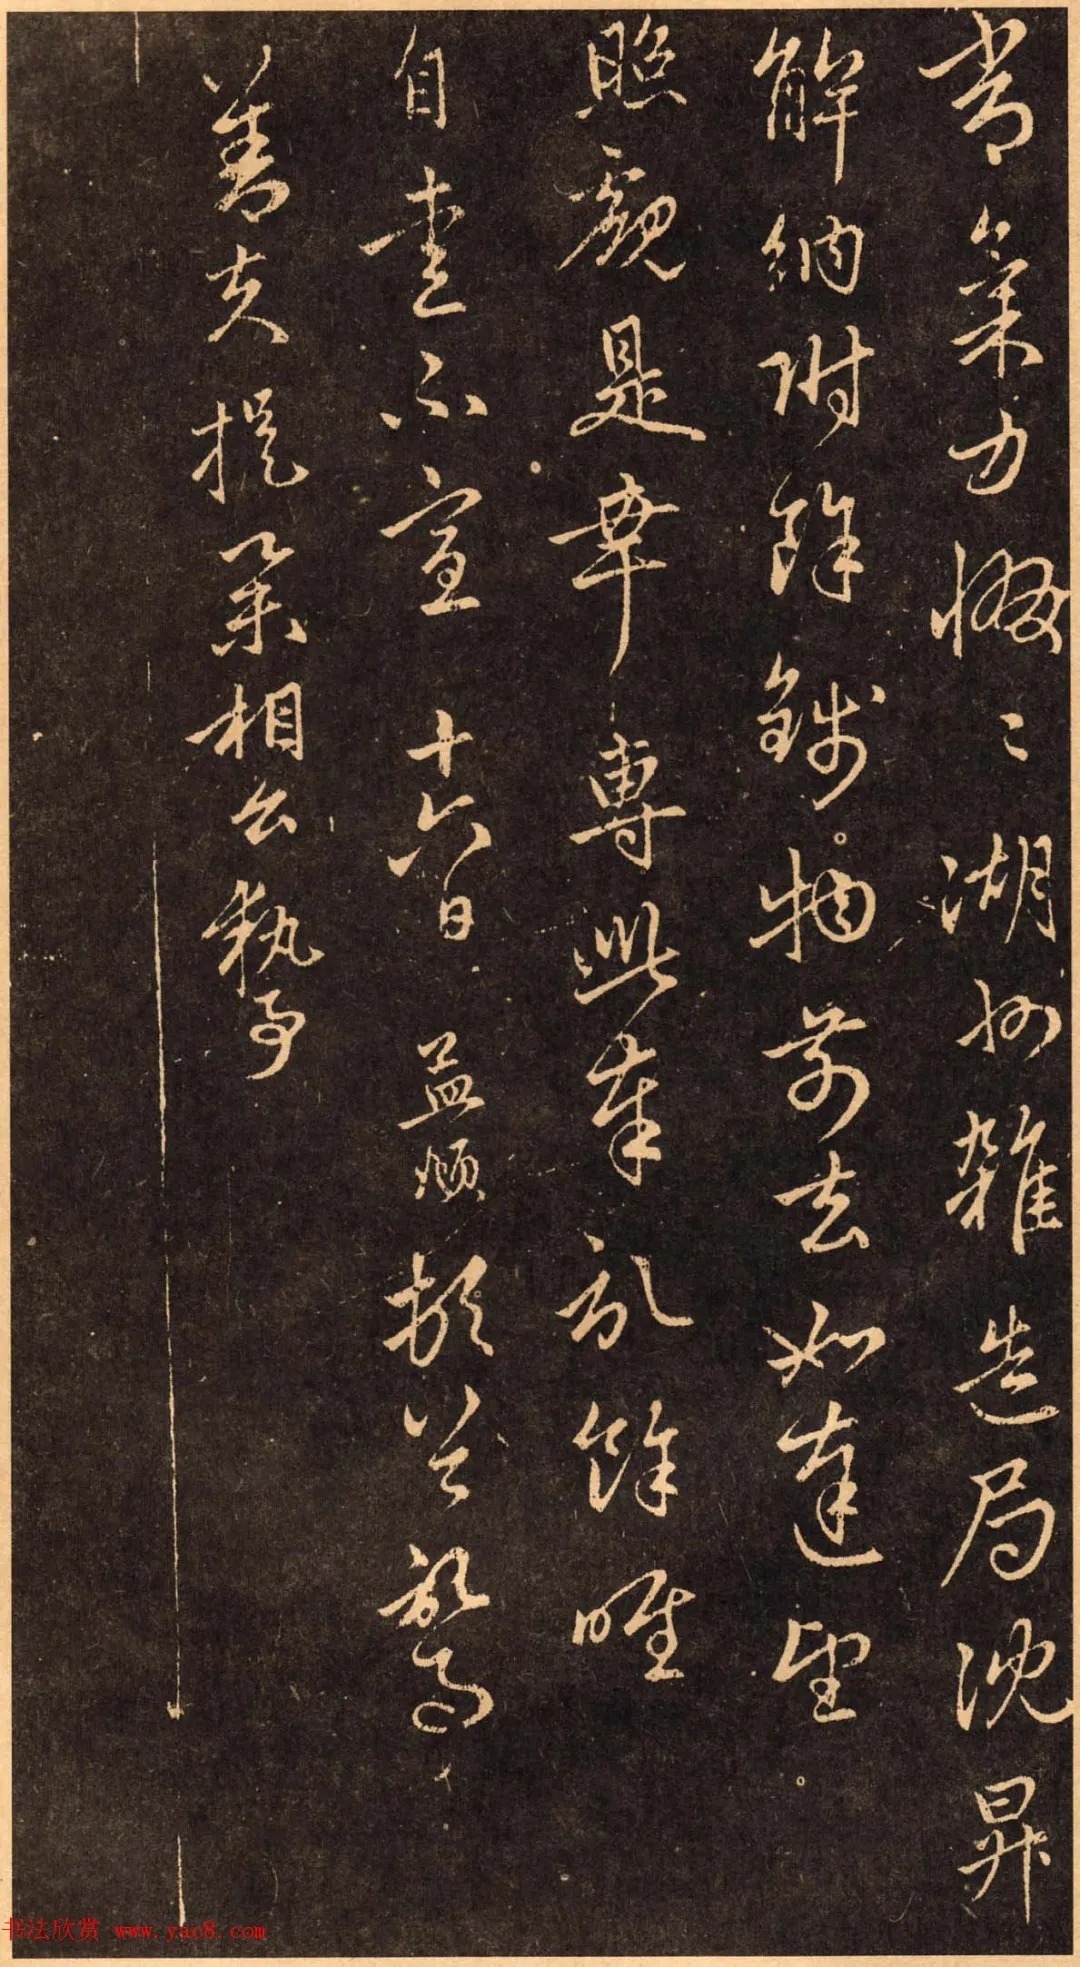 者氣力惙〻湖州雜造局沈昇
解納附餘錢物前去如達望
照覷是幸專此奉記餘唯
自愛不宣十六日孟頫頓首敬
善夫提舉相公執事
书法欣赏 www.yac8.com